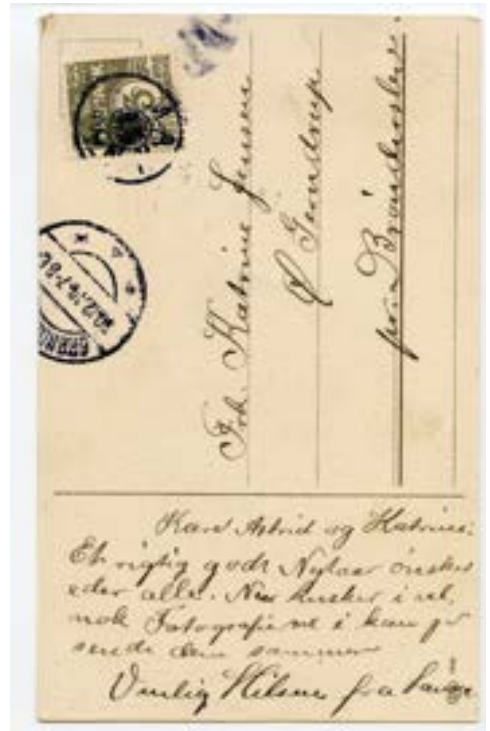 Frk. Katrine Jensen
Ø
pr. Brønderslev
Kære Astrid og Katrine.
Et rigtig godt Nytaar ønskes
eder alle. Nu husker i vel
nok Fotografierne i kan jo
sende dem sammen
Venlig Hilsen fra